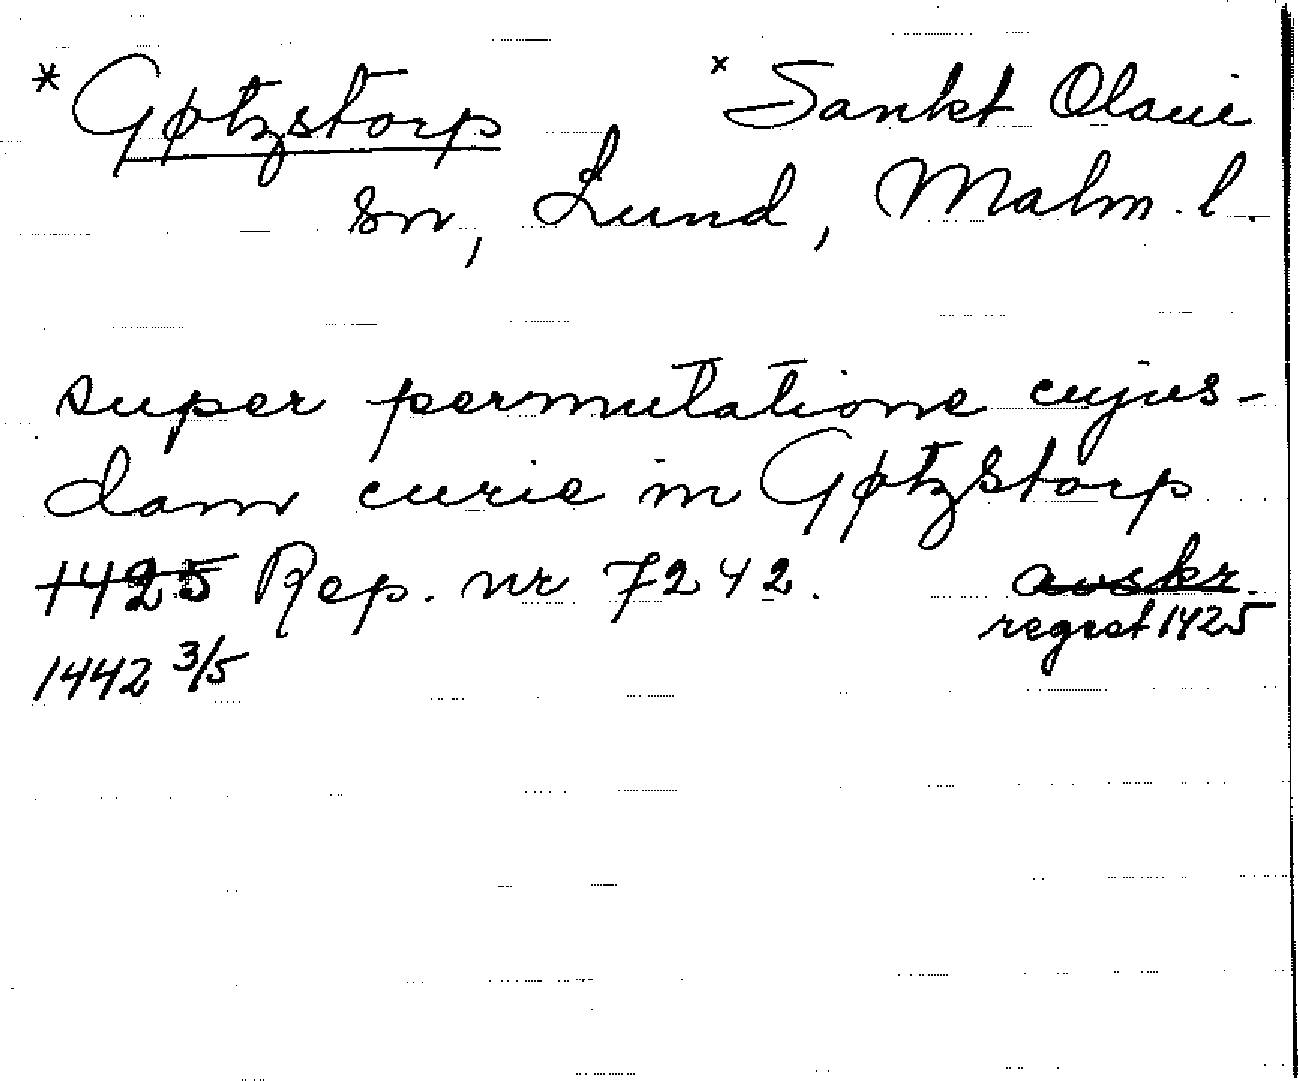 *Gøtzstorp × Sankt Olavi
sn, Lund, Malm. l.
super permutatione cujus-
dam curie in Gøtzstorp
1425 Rep. nr 7242. avskr.
regest 1425
1442 3/5